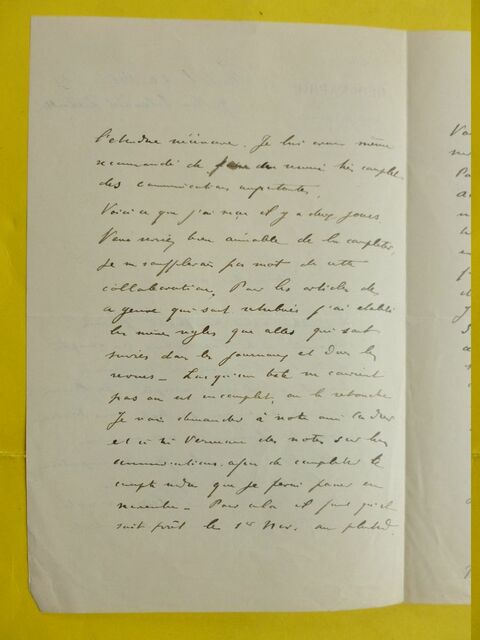 l'étendue nécessaire. Je lui avais même
recommandé de faire un résumé très complet
des communications importantes.
Voici ce que j'ai reçu il y a deux jours
Vous seriez bien aimable de le compléter.
Je ne soufflerai pas mot de cette
collaboration. Pour les articles de
ce genre qui sont rétribués j'ai établi
les mêmes règles que celles qui sont
suivies dans les journaux et dans les
revues – Lorsqu'un texte ne convient
pas ou est incomplet, on le retouche
Je vais demander à notre ami
et à Mr des notes sur les
communications afin de compléter le
compte rendu que je ferai passer en
novembre – Pour cela il faut qu'il
soit prêt le 1er Nov. au plus tard.